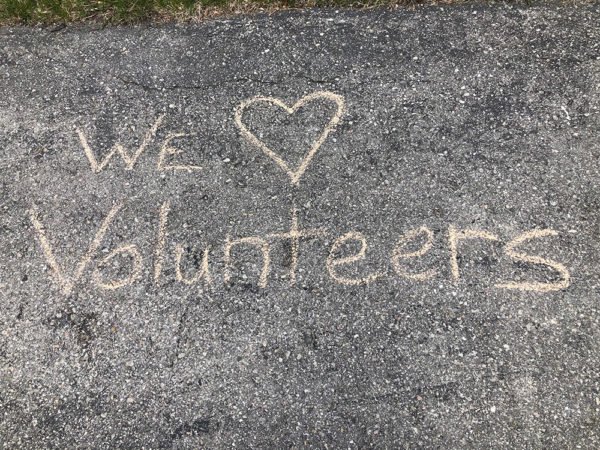 We ♡
Volunteers